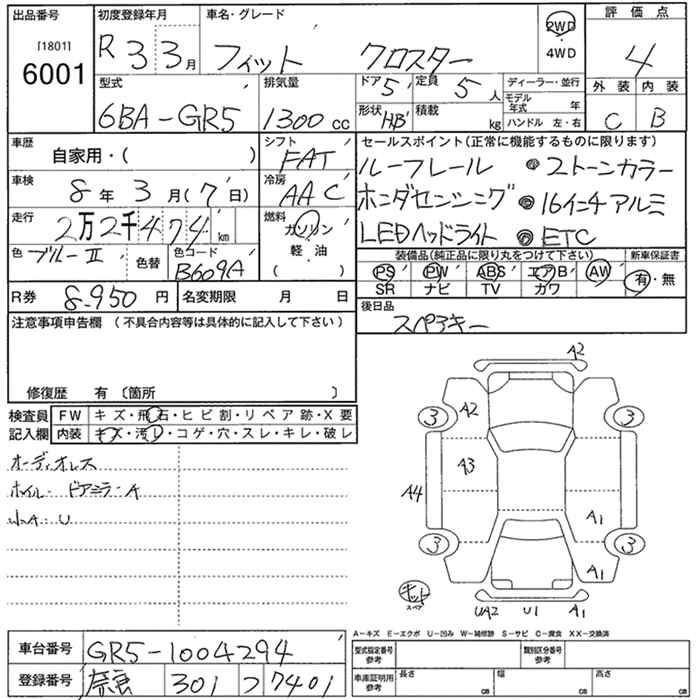 出品番号 初度登録年月 車名・グレード 評価点
[1801] 6001 R 3 3月 フィット クロスター 2WD・4WD 4
型式 排気量 ドア 5 定員 5人 ディーラー・並行 外装 内装
6BA-GR5 1300cc 形状 HB 積載 kg モデル年式 年 C B
ハンドル 左・右
車歴 自家用・( ) シフト FAT セールスポイント(正常に機能するものに限ります)
ルーフレール ●2トーンカラー
車検 8年3月(7日) 冷房 AAC ホンダセンシング ●16インチアルミ
走行 2万2千474km 燃料 ガソリン・軽油 ( ) LEDヘッドライト ●ETC
色 ブルーII 色替 色コード B609A 装備品(純正品に限り丸をつけて下さい) 新車保証書
PS PW ABS エアB AW 有・無
SR ナビ TV カワ
R券 8-950円 名変期限 月 日 後日品
スペアキー
注意事項申告欄(不具合内容等は具体的に記入して下さい)
修復歴 有〔箇所 〕
検査員記入欄 FW キズ・飛石・ヒビ割・リペア跡・X要
内装 キズ・汚レ・コゲ・穴・スレ・キレ・破レ
オーディオレス
ホイル・ドアミラーA
小A・U
A2
3 A2 3
A3
A4
A1
3 3
A1
キット
スペア
UA2 U1 A1
A-キズ E-エクボ U-凹み W-補修跡 S-サビ C-腐食 XX-交換済
車台番号 GR5-1004294 型式指定番号参考 類別区分番号参考
登録番号 奈良 301 つ 7401 車庫証明用参考 長さ cm 幅 cm 高さ cm